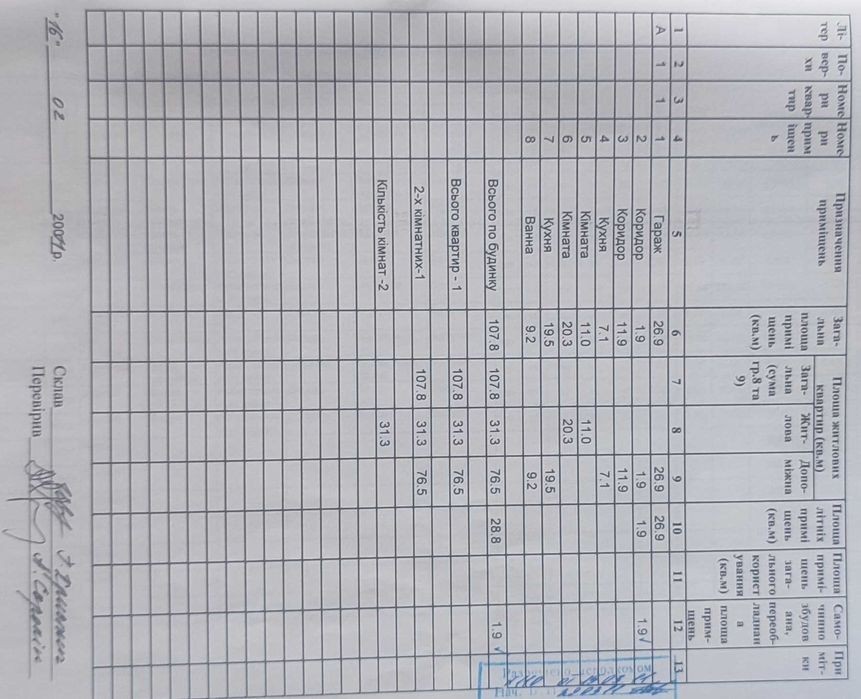 Лі-
тер
По-
вер-
хи
Номе
ри
квар
тир
Номе
ри
прим
іщен
ь
Призначення
приміщень
Зага-
льна
площа
примі
щень
(кв.м)
Площа житлових
квартир (кв.м)
Зага-
льна
(сума
гр.8 та
9)
Жит-
лова
Допо-
міжна
Площа
літніх
примі
щень
(кв.м)
Площа
примі-
щень
зага-
льного
корист
ування
(кв.м)
Само-
чинно
збудов
ана,
переоб-
ладнан
а
площа
прим-
щень
При
міт-
ки
1 2 3 4 5 6 7 8 9 10 11 12 13
А 1 1 1 Гараж 26.9 26.9 26.9
2 Коридор 1.9 1.9 1.9 1.9√
3 Коридор 11.9 11.9
4 Кухня 7.1 7.1
5 Кімната 11.0 11.0
6 Кімната 20.3 20.3
7 Кухня 19.5 19.5
8 Ванна 9.2 9.2
Всього по будинку 107.8 107.8 31.3 76.5 28.8 1.9 √
Всього квартир - 1 107.8 31.3 76.5
2-х кімнатних-1 107.8 31.3 76.5
Кількість кімнат -2 31.3
"16" 02 200 р.
Склав
Перевірив